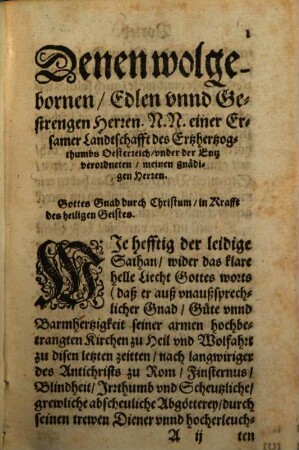 1
Denen wolge-
bornen / Edlen vnnd Ge-
strengen Herren. N.N. einer Er-
samer Landtschafft des Ertzhertzog-
thumbs Oesterreich / vnder der Entz
verordneten / meinen gnädi-
gen Herren.
Gottes Gnad durch Christum / in Krafft
des heiligen Geistes.
WIe hefftig der leidige
Sathan / wider das klare
helle Liecht Gottes worts
(daß er auß vnaußsprech-
licher Gnad / Güte vnnd
Barmhertzigkeit seiner armen hochbe-
trangten Kirchen zu Heil vnd Wolfahrt
zu disen letzten zeitten / nach langwiriger
des Antichrists zu Rom / Finsternus /
Blindheit / Irrthumb vnd Scheutzliche /
grewliche abscheuliche Abgötterey / durch
seinen trewen Diener vnnd hocherleuch-
A ij ten